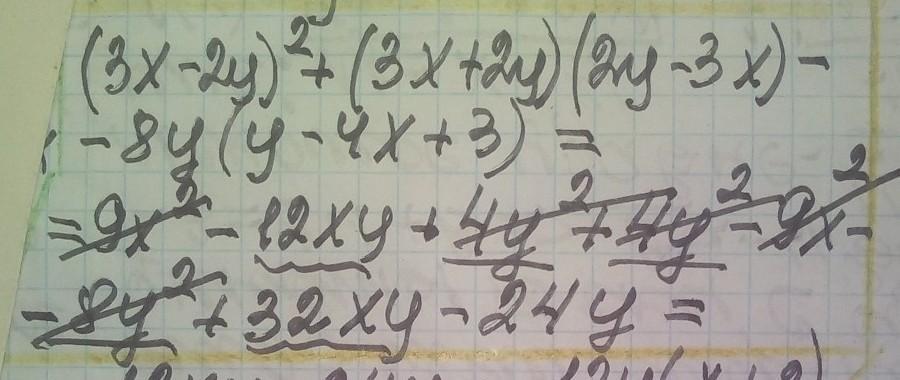 (3x-2y)²+(3x+2y)(2y-3x)-
-8y(y-4x+3)=
=9x²-12xy+4y²+4y²-9x²-
-8y²+32xy-24y=